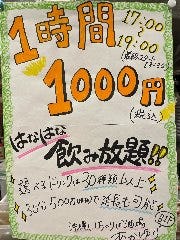 1時間
17:00
〜
19:00
1000円
(税込)
はなはな
飲み放題!!
選べるドリンクは30種類以上
500円
延長も可能
沖縄
酒場